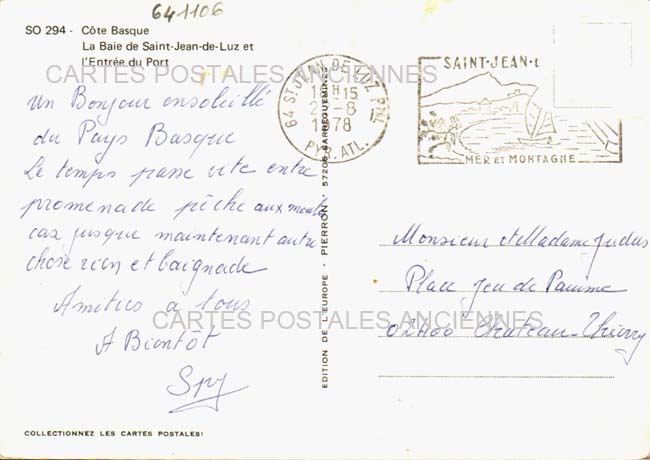 641106
SO 294 - Côte Basque
La Baie de Saint-Jean-de-Luz et
l'Entrée du Port
CARTES POSTALES ANCIENNES
64 ST JEAN DE LUZ PPAL
18H15
2-8
1978
PYR. ATL.
SAINT-JEAN-
MER ET MONTAGNE
un Bonjour ensoleillé
du Pays Basque
Le temps passe vite entre
promenade pêche aux
car jusque maintenant autre
chose rien et baignade
Amities a tous
A Bientôt
EDITION DE L'EUROPE - PIERRON - 57206 SARREGUEMINES
Monsieur et Madame Judas
Place Jeu de Paume
02400 Chateau-Thierry
CARTES POSTALES ANCIENNES
COLLECTIONNEZ LES CARTES POSTALES!